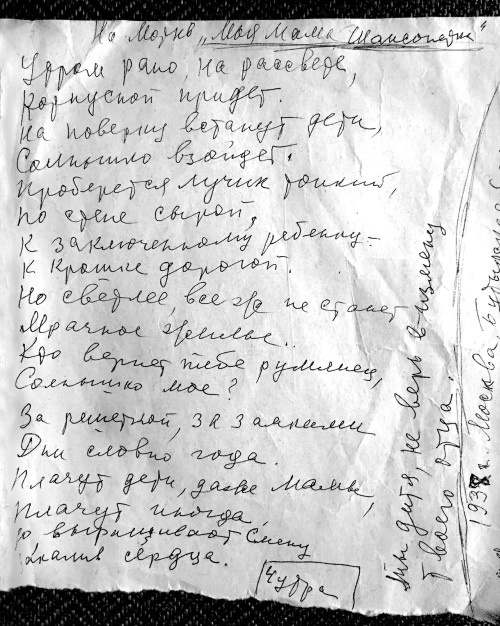 На мотив „Моя мама шансонетка“
Утром рано, на рассвете,
Корпусной придет.
На поверку встанут дети,
Солнышко взойдет.
Проберется лучик тонкий,
По стене сырой,
К заключенному ребенку –
К крошке дорогой.
Но светлее, все же не станет
Мрачное жилье..
Кто вернет тебе румянец,
Солнышко мое?
За решеткой, за замками
Дни словно года.
Плачут дети, даже мамы,
Плачут иногда
выращивают смену
сердца.
Чурбра
дитя, не верь в измену
Твоего отца.
1938 г. Москва.